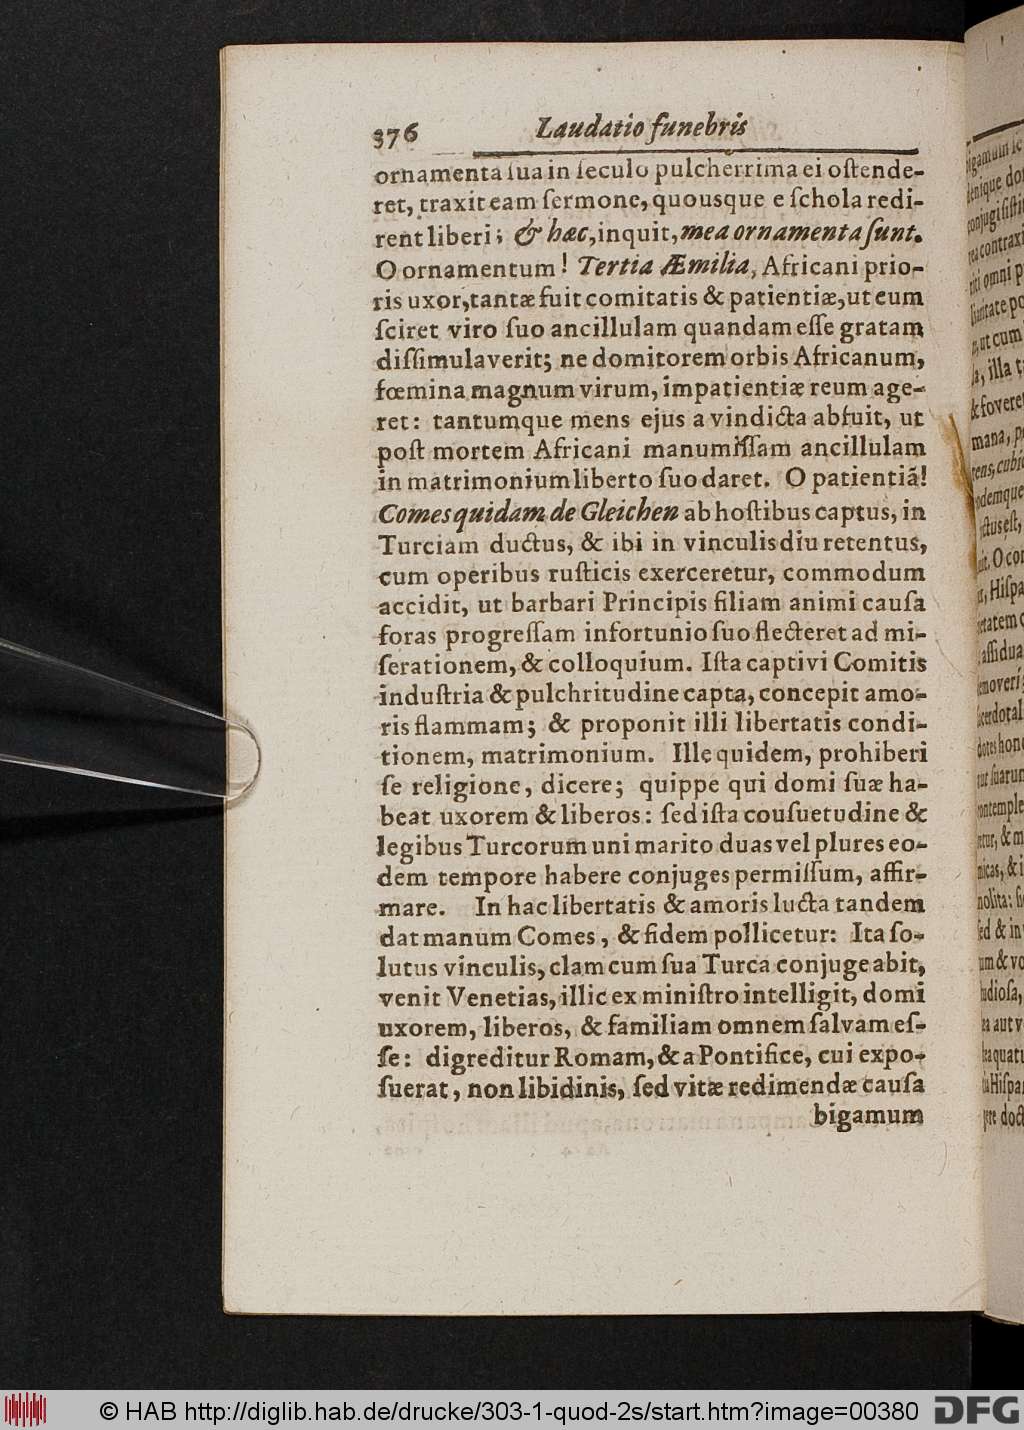 376 Laudatio funebris
ornamenta ſua in ſeculo pulcherrima ei oſtende-
ret, traxit eam ſermone, quousque e ſchola redi-
rent liberi; & hæc, inquit, mea ornamenta ſunt.
O ornamentum! Tertia Æmilia, Africani prio-
ris uxor, tantæ fuit comitatis & patientiæ, ut cum
ſciret viro ſuo ancillulam quandam eſſe gratam
diſſimulaverit; ne domitorem orbis Africanum,
fœmina magnum virum, impatientiæ reum age-
ret: tantumque mens ejus a vindicta abfuit, ut
poſt mortem Africani manumiſſam ancillulam
in matrimonium liberto ſuo daret. O patientiã!
Comes quidam de Gleichen ab hoſtibus captus, in
Turciam ductus, & ibi in vinculis diu retentus,
cum operibus ruſticis exerceretur, commodum
accidit, ut barbari Principis filiam animi cauſa
foras progreſſam infortunio ſuo flecteret ad mi-
ſerationem, & colloquium. Iſta captivi Comitis
induſtria & pulchritudine capta, concepit amo-
ris flammam; & proponit illi libertatis condi-
tionem, matrimonium. Ille quidem, prohiberi
ſe religione, dicere; quippe qui domi ſuæ ha-
beat uxorem & liberos: ſed iſta couſuetudine &
legibus Turcorum uni marito duas vel plures eo-
dem tempore habere conjuges permiſſum, affir-
mare. In hac libertatis & amoris lucta tandem
dat manum Comes, & fidem pollicetur: Ita ſo-
lutus vinculis, clam cum ſua Turca conjuge abit,
venit Venetias, illic ex miniſtro intelligit, domi
uxorem, liberos, & familiam omnem ſalvam eſ-
ſe: digreditur Romam, & a Pontifice, cui expo-
ſuerat, non libidinis, ſed vitæ redimendæ cauſa
bigamum
© HAB http://diglib.hab.de/drucke/303-1-quod-2s/start.htm?image=00380
DFG